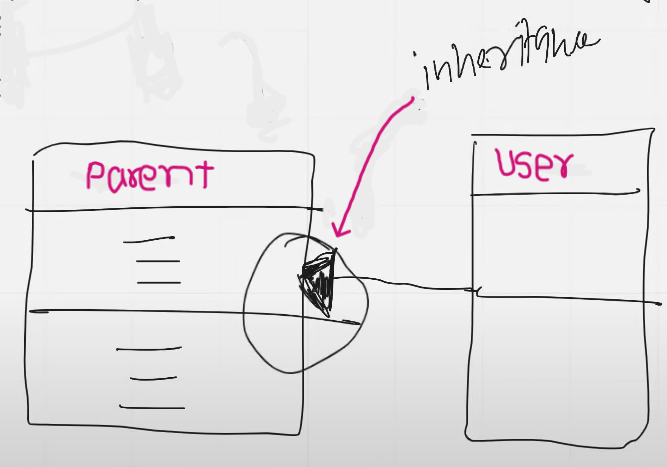 inheritance
Parent
User